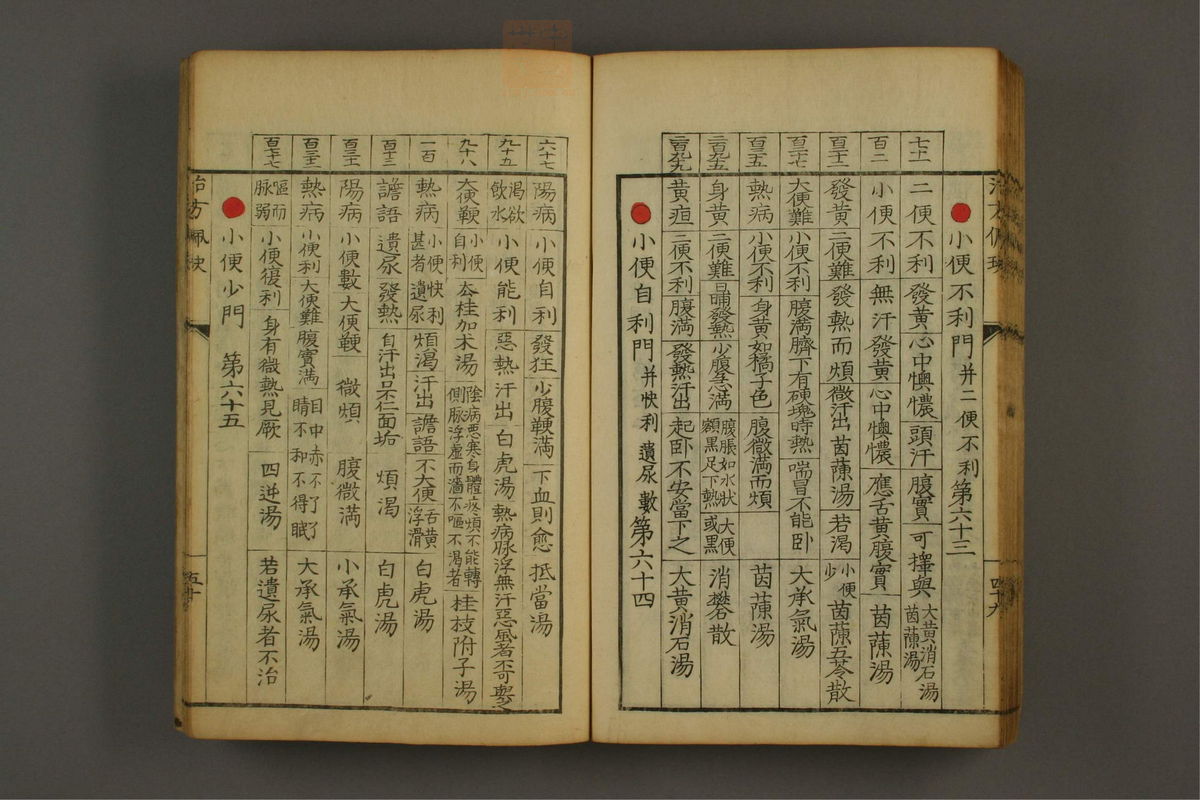 小便不利門 并二便不利 第六十三
二便不利 發黃心中懊憹 頭汗 腹實 可擇與 大黃消石湯 茵蔯湯
百二 小便不利 無汗發黃 心中懊憹 應舌黃腹實 茵蔯湯
發黃 二便難 發熱而煩 微汗出 茵蔯湯 若渴 小便少 茵蔯五苓散
大便難 小便不利 腹滿臍下有硬塊時熱 喘冒不能卧 大承氣湯
熱病 小便不利 身黃如橘子色 腹微滿而煩 茵蔯湯
身黃 二便難 日晡發熱 少腹急滿 腹脹如水狀 額黑足下熱 大便或黑 消礬散
黃疸 二便不利 腹滿 發熱汗出 起卧不安當下之 大黃消石湯
小便自利門 并快利 遺尿 數 第六十四
六十七 陽病 小便自利 發狂 少腹鞕滿 下血則愈 抵當湯
九十五 渴欲飲水 小便能利 惡熱 汗出 白虎湯 熱病脉浮無汗惡風者不可與之
九十八 大便鞕 小便自利 去桂加朮湯 陰病惡寒身體疼煩不能轉側脉浮虛而濇不嘔不渴者 桂枝附子湯
一百 熱病 小便快利甚者遺尿 煩渴 汗出 譫語 不大便 舌黃浮滑 白虎湯
譫語 遺尿 發熱 自汗出 口不仁面垢 煩渴 白虎湯
陽病 小便數 大便鞕 微煩 腹微滿 小承氣湯
熱病 小便利 大便難 腹實滿 目中赤不了了睛不和不得眠 大承氣湯
嘔而脉弱 小便復利 身有微熱見厥 四逆湯 若遺尿者不治
小便少門 第六十五
四十九
五十